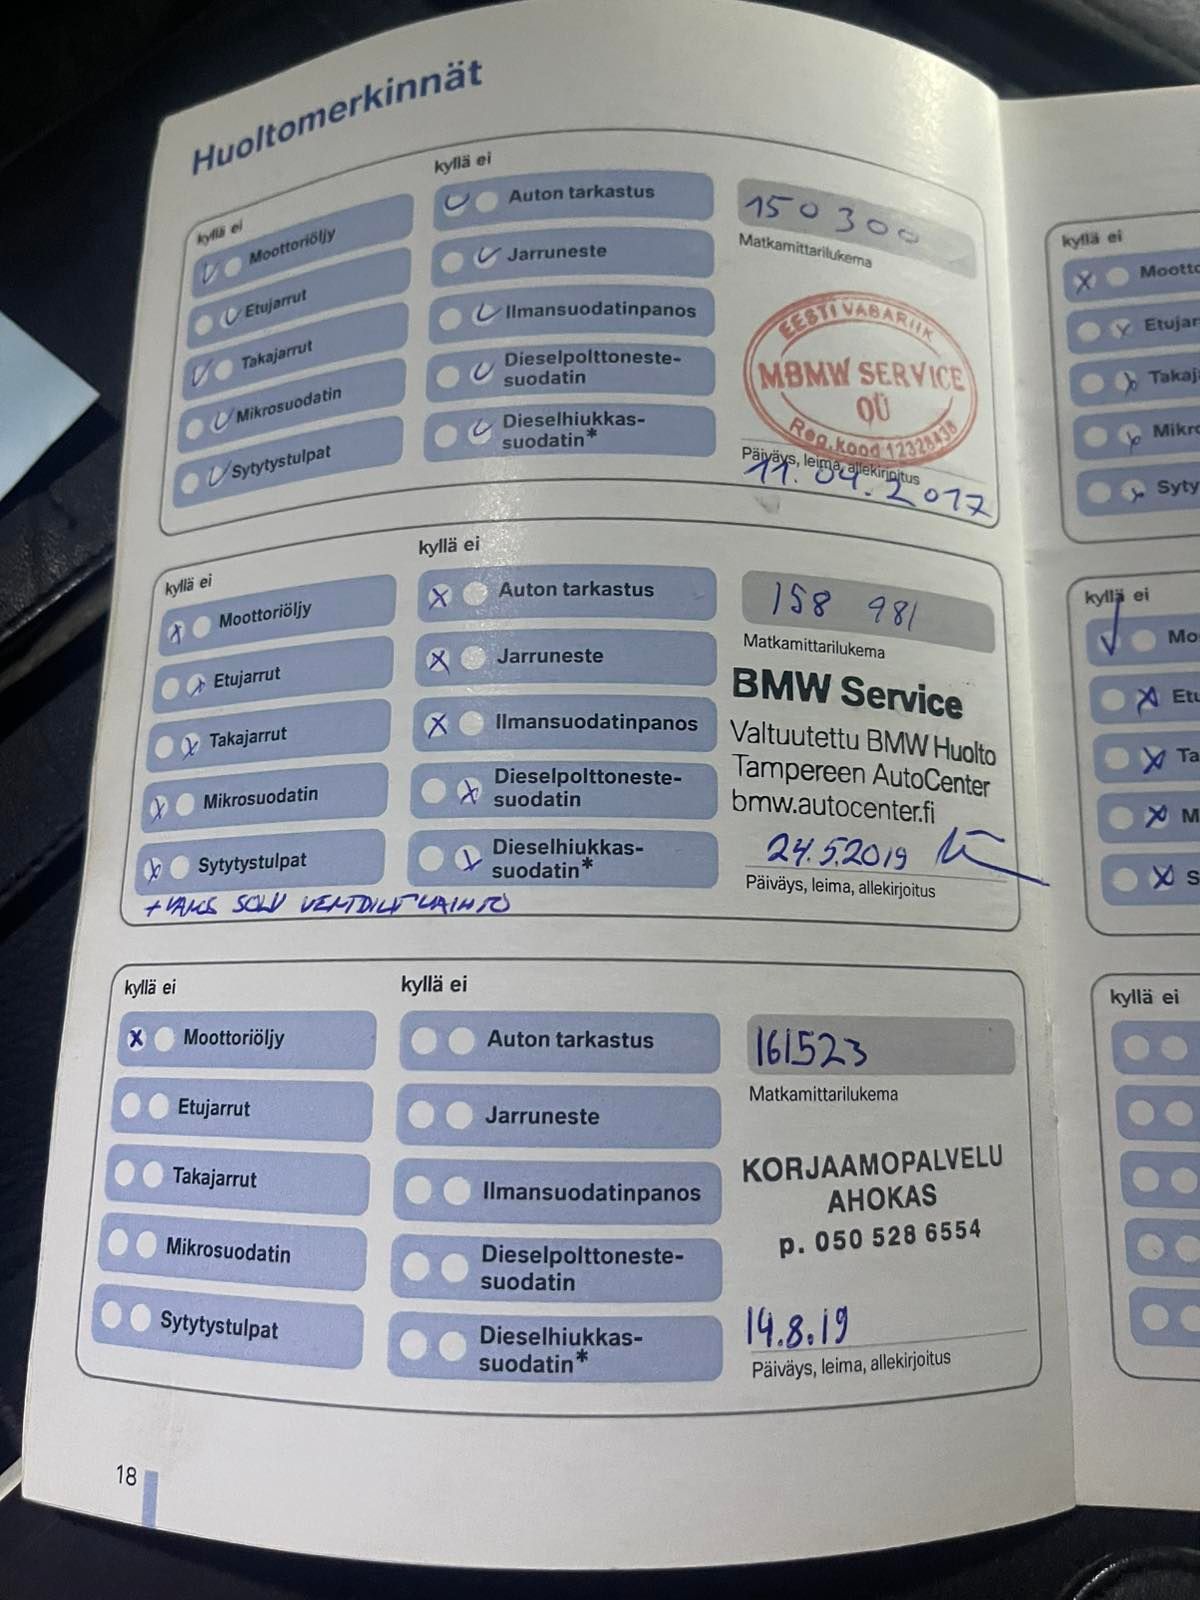 Huoltomerkinnät
kyllä ei
kyllä ei
Moottoriöljy
Etujarrut
Takajarrut
Mikrosuodatin
Sytytystulpat
Auton tarkastus
Jarruneste
Ilmansuodatinpanos
Dieselpolttoneste-
suodatin
Dieselhiukkas-
suodatin*
150 300
Matkamittarilukema
EESTI VABARIIK
MBMW SERVICE
OÜ
Reg. kood 12328438
Päiväys, leima, allekirjoitus
11.04.2017
kyllä ei
kyllä ei
Moottoriöljy
Etujarrut
Takajarrut
Mikrosuodatin
Sytytystulpat
Auton tarkastus
Jarruneste
Ilmansuodatinpanos
Dieselpolttoneste-
suodatin
Dieselhiukkas-
suodatin*
158 981
Matkamittarilukema
BMW Service
Valtuutettu BMW Huolto
Tampereen AutoCenter
bmw.autocenter.fi
24.5.2019
Päiväys, leima, allekirjoitus
kyllä ei
kyllä ei
Moottoriöljy
Etujarrut
Takajarrut
Mikrosuodatin
Sytytystulpat
Auton tarkastus
Jarruneste
Ilmansuodatinpanos
Dieselpolttoneste-
suodatin
Dieselhiukkas-
suodatin*
161523
Matkamittarilukema
KORJAAMOPALVELU
AHOKAS
p. 050 528 6554
14.8.19
Päiväys, leima, allekirjoitus
18
kyllä ei
Mootto
Etujar
Takaj
Mikro
Syty
kyllä ei
Mo
Etu
Ta
M
S
kyllä ei